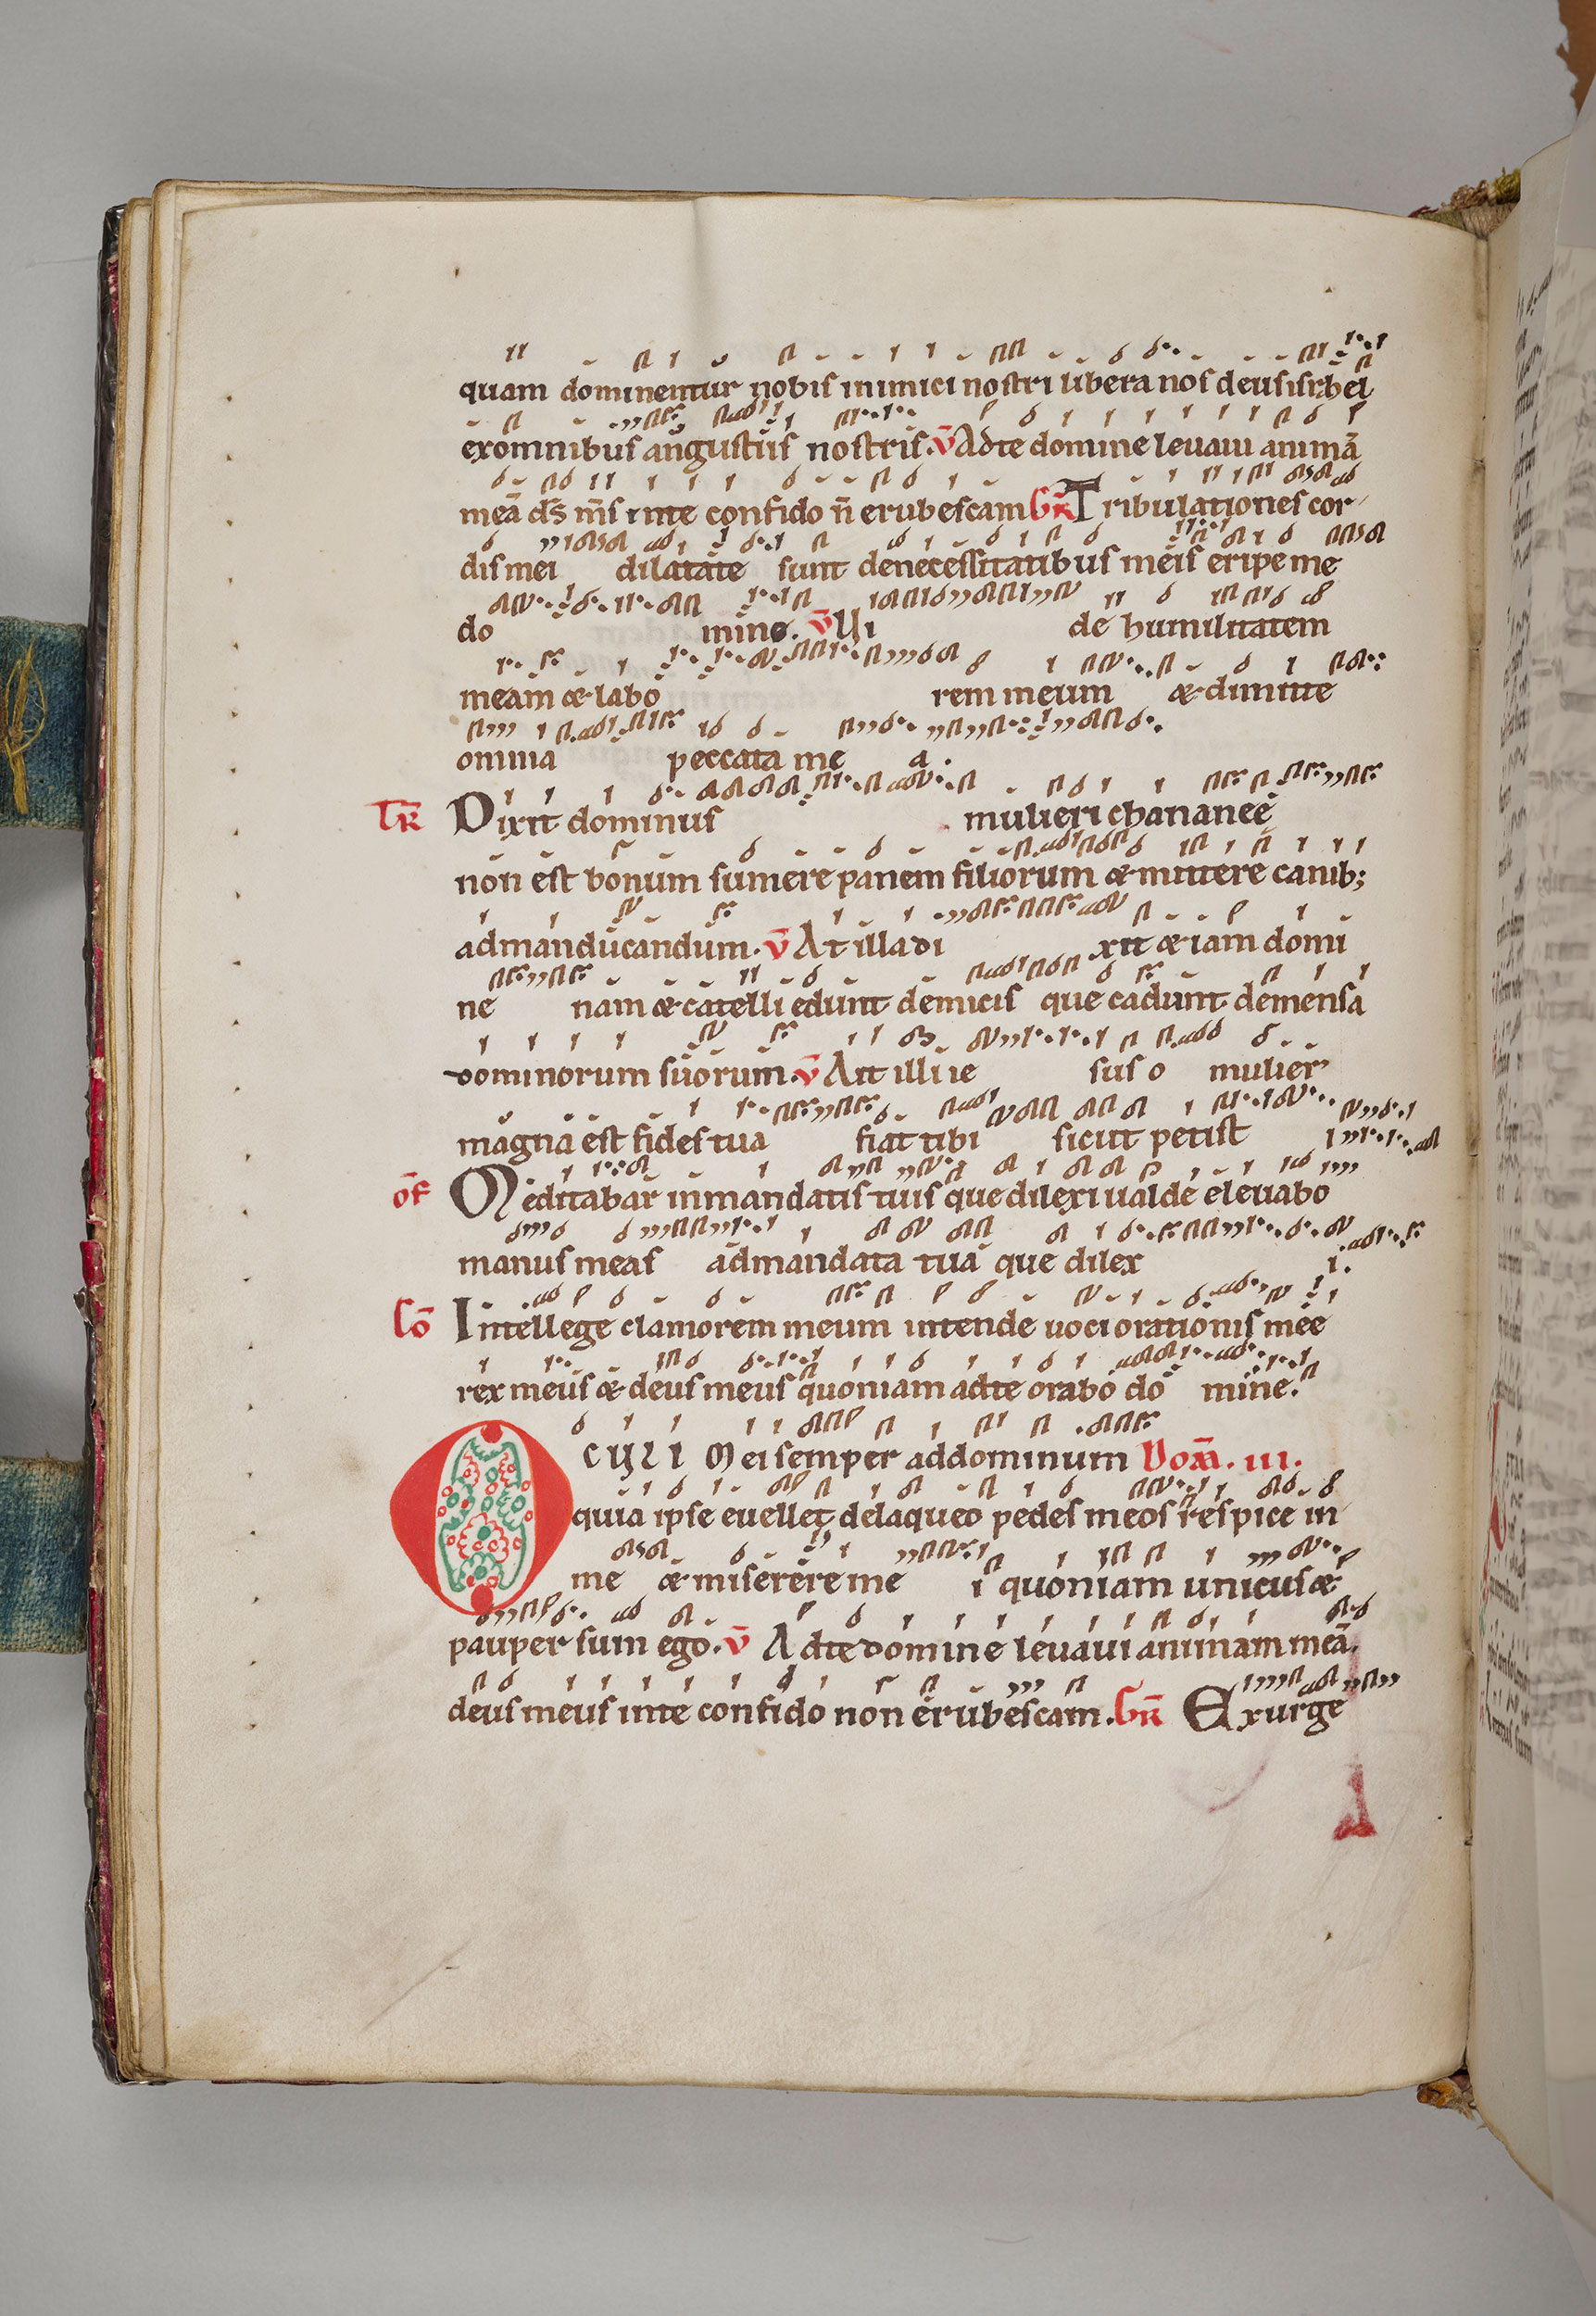 quam dominentur nobis inimici nostri libera nos deus isrƀel
ex omnibus angustiis nostris. v̄ Ad te domine levavi animā
meā ds̄ m̄s in te confido n̄ erubescam GR̄ Tribulationes cor
dis mei dilatate sunt de necessitatibus meis eripe me
do mine. v̄ Vi de humilitatem
meam & labo rem meum & dimitte
omnia peccata me a.
TR̄ Dixit dominus mulieri chananeę
non est bonum sumere panem filiorum & mittere canib;
ad manducandum. v̄ At illa di xit & iam domi
ne nam & catelli edunt de micis que cadunt de mensa
dominorum suorum. v̄ Ait illi ie sus o mulier
magna est fides tua fiat tibi sicut petist i
ōF Meditabar in mandatis tuis que dilexi valde elevabo
manus meas ad mandata tua que dilex i.
Cō Intellege clamorem meum intende voci orationis meę
rex meus & deus meus quoniam ad te orabo do mine.
OCULI Mei semper ad dominum Dom̄. III.
quia ipse evellet de laqueo pedes meos respice in
me & miserere me i quoniam unicus &
pauper sum ego. v̄ Ad te domine levavi animam meā.
deus meus in te confido non erubescam. GR̄ Exurge